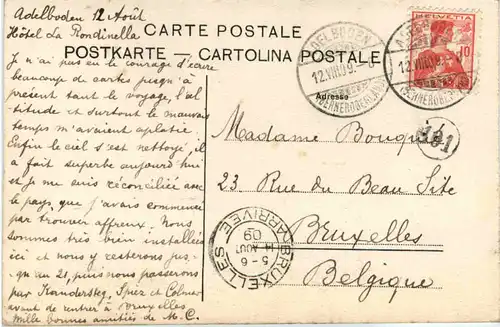 Adelboden 12 Août
Hôtel La Rondinella
CARTE POSTALE
POSTKARTE — CARTOLINA POSTALE
J'e n'ai pas eu le courage d'écrire
beaucoup de cartes jusqu'à
présent tant le voyage, l'al-
titude et surtout le mauvais
temps m'avaient aplatie.
Enfin le ciel s'est nettoyé, il
a fait superbe aujourd'hui
et je me suis réconciliée avec
le pays, que j'avais commencé
par trouver affreux. Nous
sommes très bien installées
ici et nous y resterons jus-
qu'au 21, puis nous passerons
par Kandersteg, Spiez et Colmar
avant de rentrer à Bruxelles
Mille bonnes amitiés de M.C.
ADELBODEN
12.VIII.09
(BERNEROBERLAND)
HELVETIA
10
ADELBODEN
12.VIII.09
(BERNEROBERLAND)
Adresse
181
Madame Bouqué
23 Rue du Beau Site
Bruxelles
Belgique
BRUXELLES
5-6
14 AOUT
09
ARRIVEE